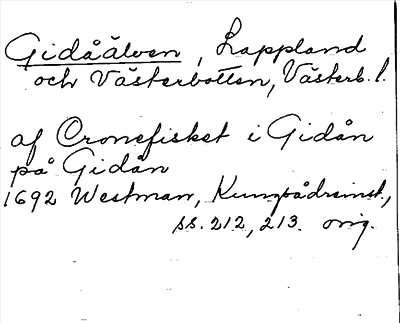 Gidåälven, Lappland
och Västerbotten, Västerb. l.
af Cronefisket i Gidån
på Gidån
1692 Westman, Kungsådreinst.,
ss. 212, 213. orig.